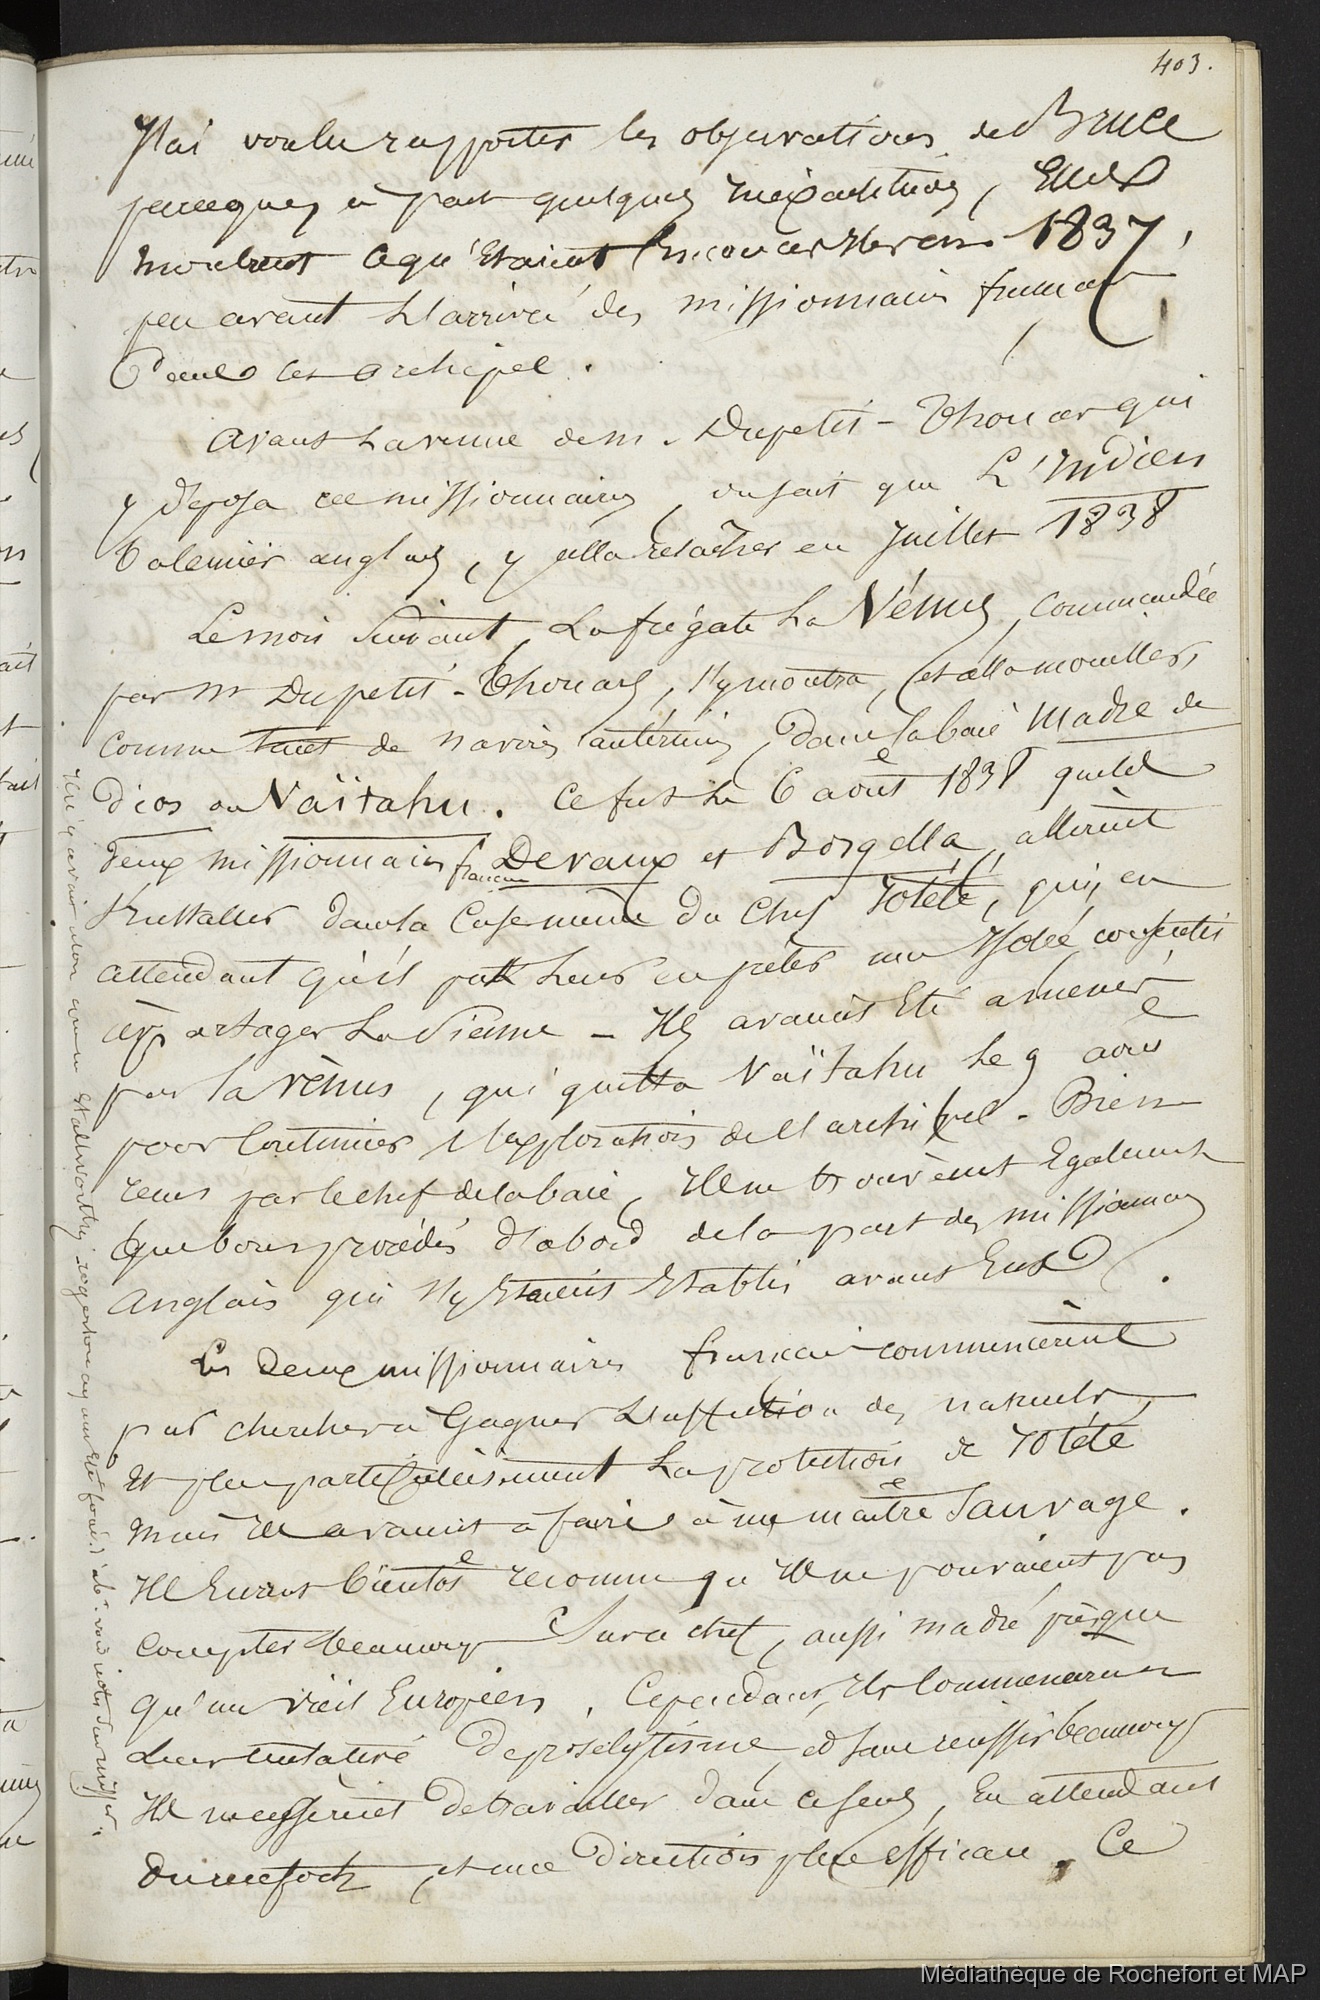 403.
J'ai voulu rapporter les observations de Bruce
parceque, à part quelques inexactitudes, Elles
montrent ce qu'étaient encore ces iles en 1837,
peu avant l'arrivée des missionnaires français
dans cet archipel.
Avant la venue de m. Dupetit-Thouars qui
y déposa ces missionnaires, on sait que L'Indien
baleinier anglais, y alla relâcher en juillet 1838
Le mois suivant, la frégate la Vénus, commandée
par Mr Dupetit-Thouars, s'y montra, et alla mouiller,
comme tant de navires antérieurs, dans la baie Madre de
Dios ou Vaïtahu. Ce fut le 6 août 1838 que les
deux missionnaires français Devaux et Borgella, allèrent
s'installer dans la Case même du Chef Iotété, qui, en
attendant qu'il put leur en prêter une isolée consentit
à partager la Sienne - Ils avaient été amenés
par la Vénus, qui quitta Vaïtahu le 9 août
pour Continuer l'exploration de l'archipel. Bien
reçus par le chef de la baie, Ils ne trouvèrent Egalement
que bons procédés d'abord de la part des missionnaires
Anglais qui s'y Etaient Etablis avant Eux.
Les deux missionnaires français commencèrent
par chercher à Gagner l'affection des naturels,
Et plus particulièrement la protection de Iotété
mais ils avaient à faire à un maître Sauvage.
Ils Eurent bientôt reconnu qu'Ils ne pouvaient pas
compter beaucoup Sur ce chef, aussi madré presque
qu'un vieil Européen. Cependant, Ils Commencèrent
Leur tentative de prosélytisme, et sans réussir beaucoup
Ils ne cessèrent de travailler dans ce sens, En attendant
du renfort, et une Direction plus efficace. Ce
Il n'y avait alors que Mr Stallworthy,